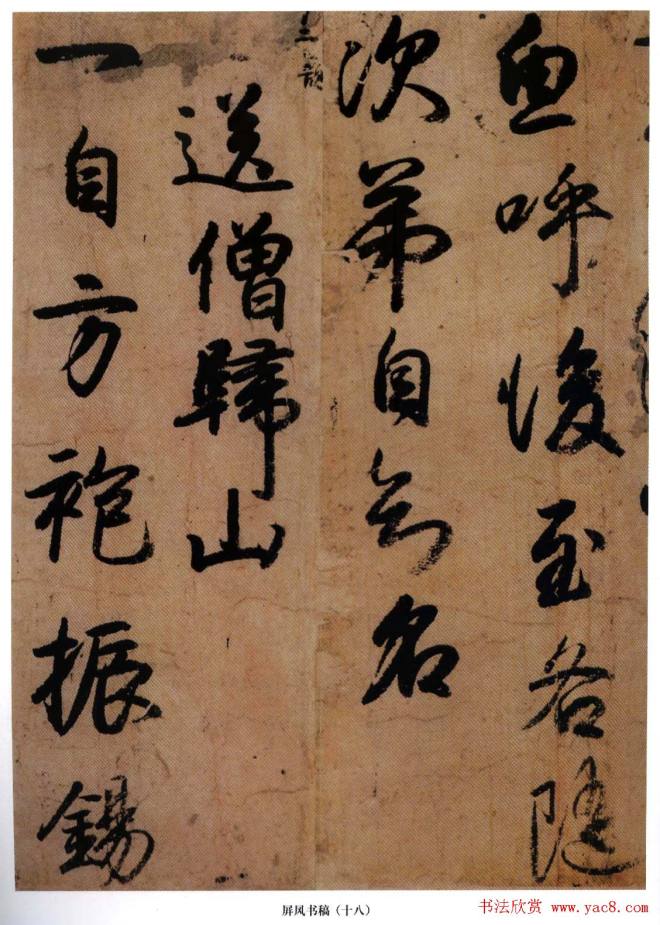 魚呼後至各隨
次第自知名
三韻
送僧歸山
一自方袍振錫
屏风书稿（十八）
书法欣赏 www.yac8.com